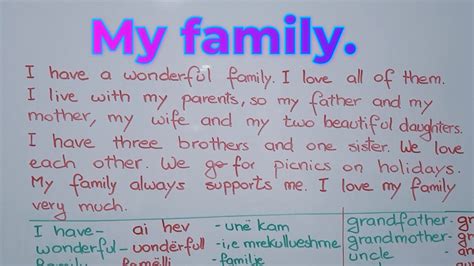 My family.
I have a wonderful family. I love all of them.
I live with my parents, so my father and my
mother, my wife and my two beautiful daughters.
I have three brothers and one sister. We love
each other. We go for picnics on holidays.
My family always supports me. I love my family
very much.
I have- ai hev -unë kam grandfather-
wonderful- uondërfull -i,e mrekullueshme grandmother-
Family famëlli -familje uncle -